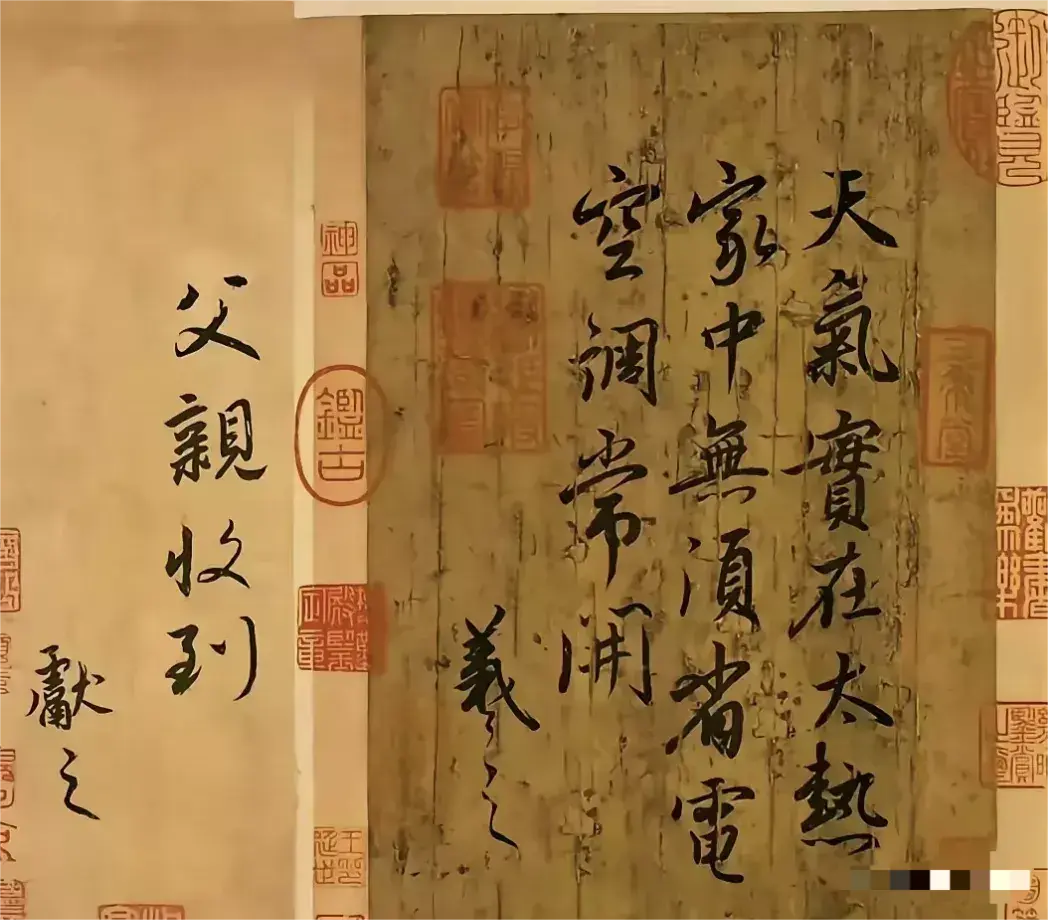 天氣實在太熱
家中無須省電
空調常開
羲之
神品
鑑古
父親收到
獻之